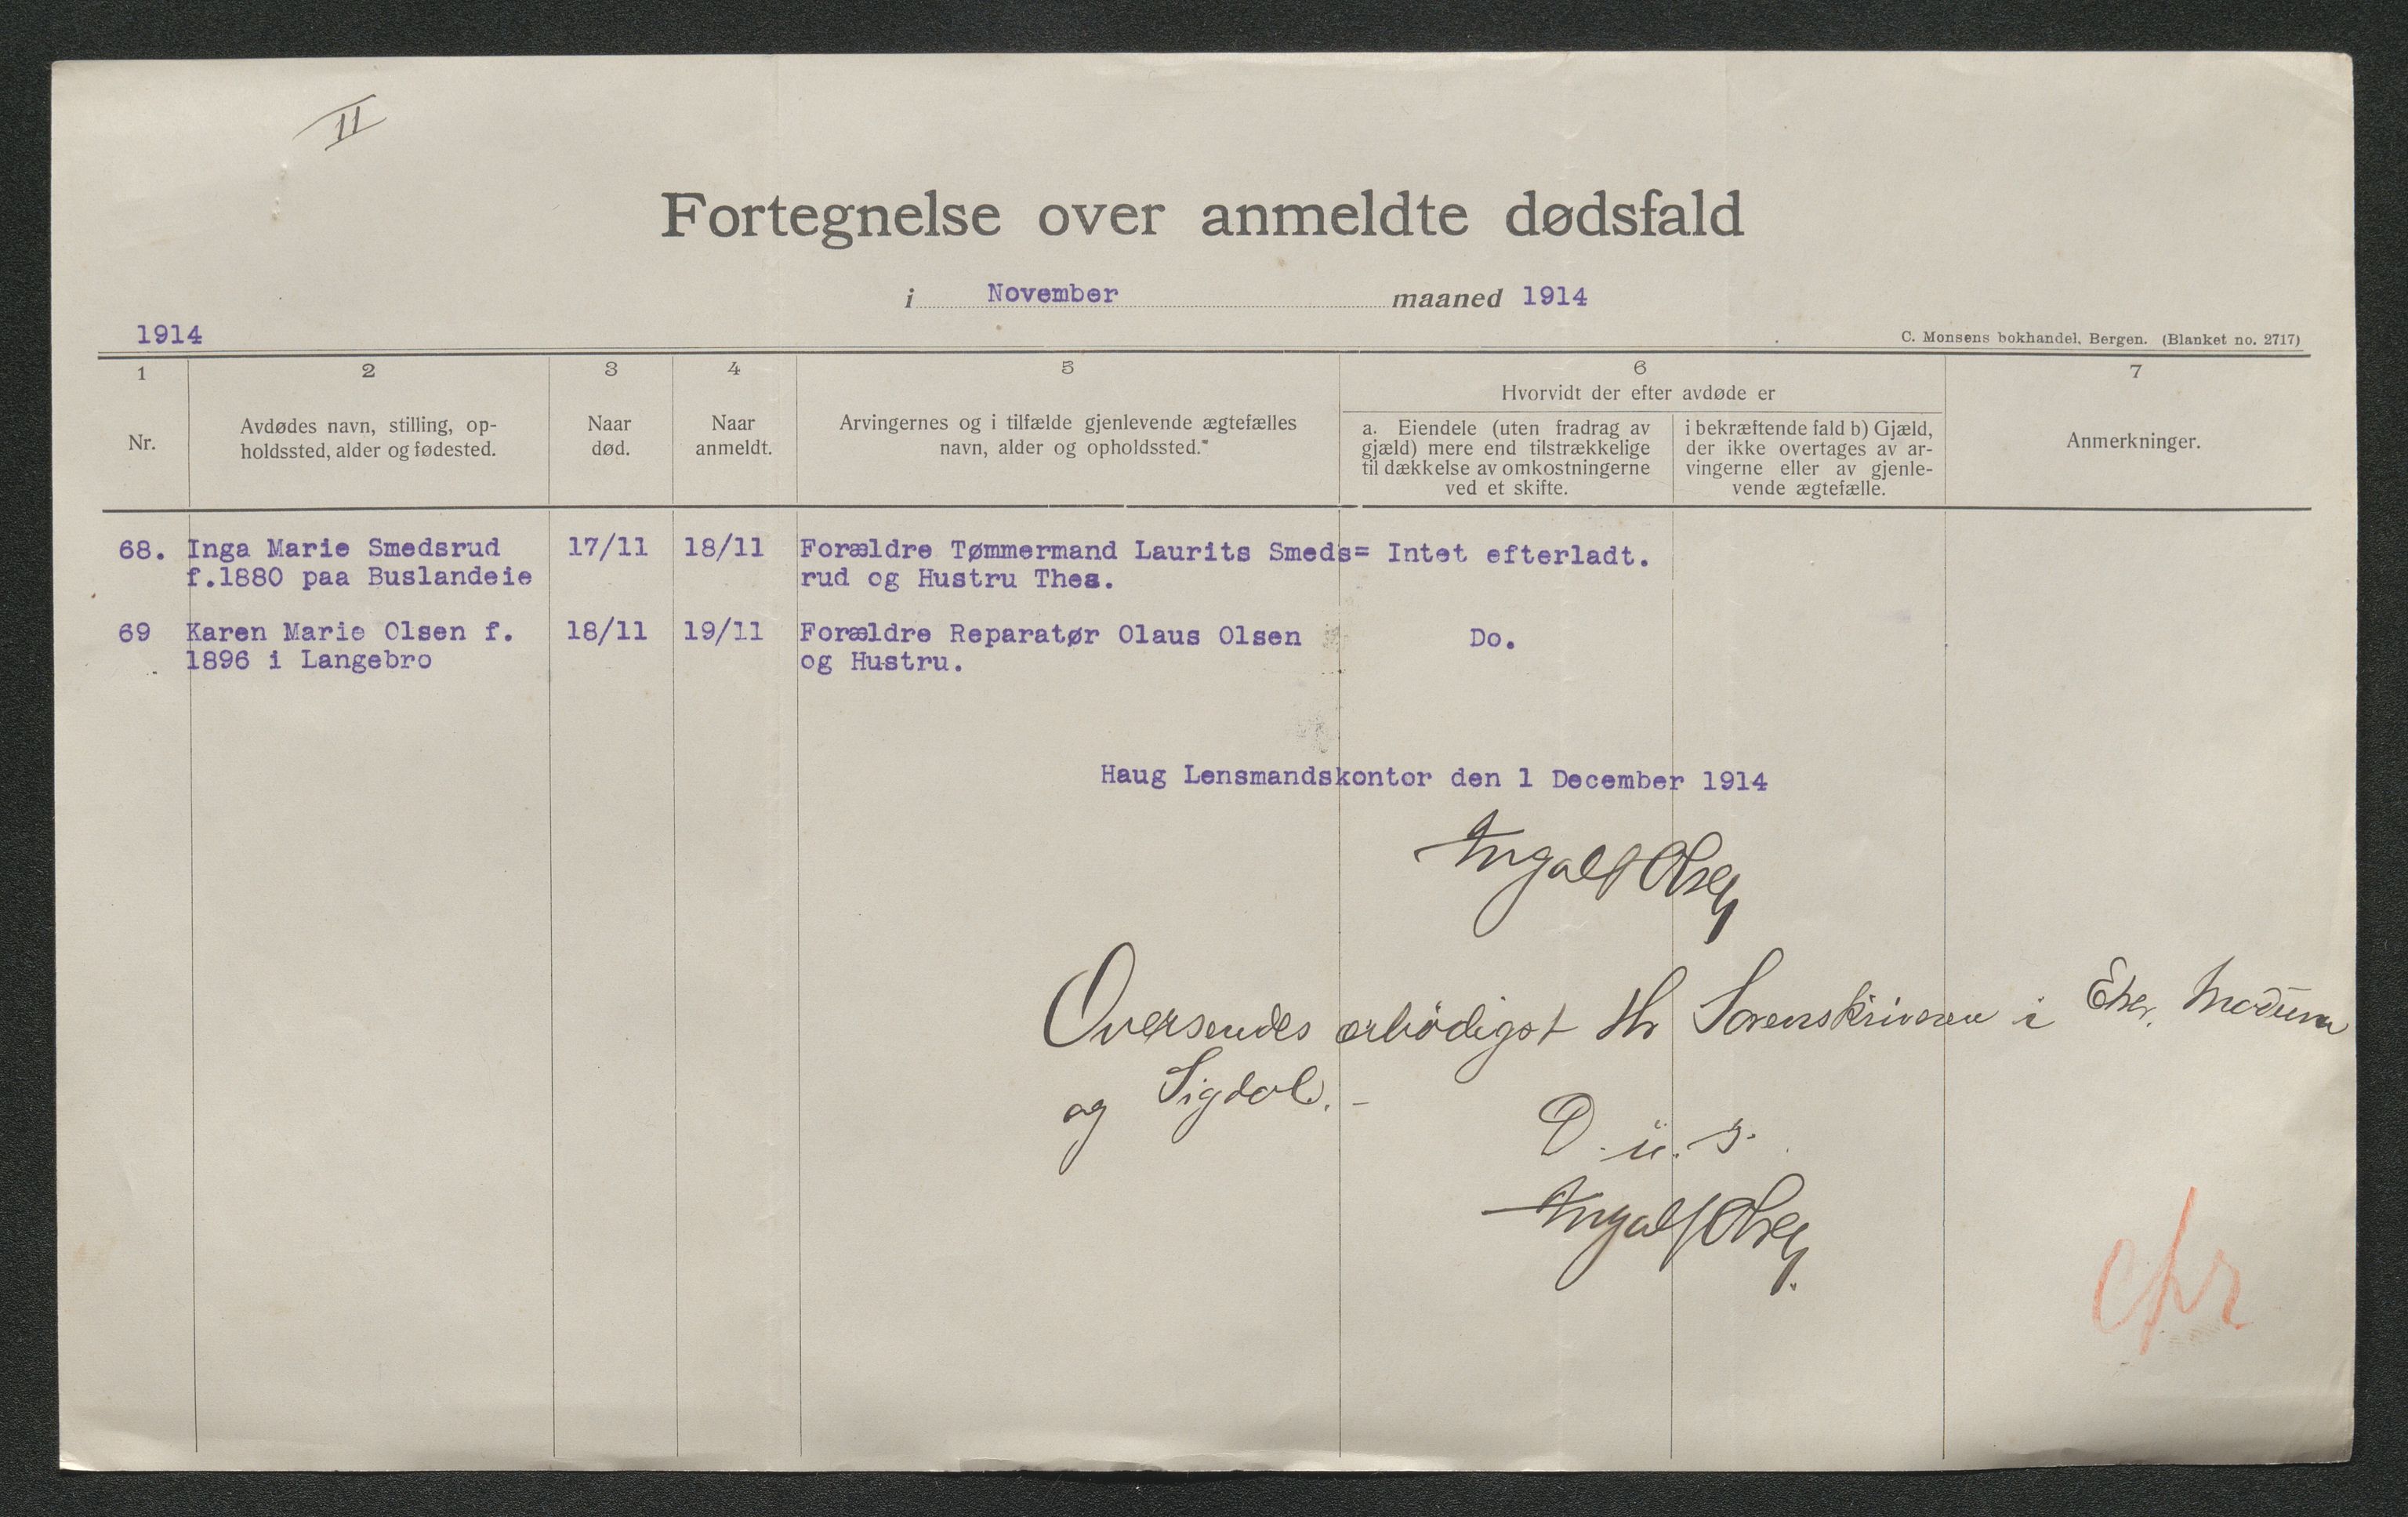 II
Fortegnelse over anmeldte dødsfald
i November maaned 1914
1914
C. Monsens bokhandel, Bergen. (Blanket no. 2717)
1 2 3 4 5 6 7
Hvorvidt der efter avdøde er
Nr.
Avdødes navn, stilling, op-
holdssted, alder og fødested.
Naar
død.
Naar
anmeldt.
Arvingernes og i tilfælde gjenlevende ægtefælles
navn, alder og opholdssted.
a. Eiendele (uten fradrag av
gjæld) mere end tilstrækkelige
til dækkelse av omkostningerne
ved et skifte.
i bekræftende fald b) Gjæld,
der ikke overtages av ar-
vingerne eller av gjenle-
vende ægtefælle.
Anmerkninger.
68. Inga Marie Smedsrud 17/11 18/11 Forældre Tømmermand Laurits Smeds= Intet efterladt.
f.1880 paa Buslandeie rud og Hustru Thea.
69 Karen Marie Olsen f. 18/11 19/11 Forældre Reparatør Olaus Olsen Do.
1896 i Langebro og Hustru.
Haug Lensmandskontor den 1 December 1914
Ingolf Olsen
Oversendes ærbødigst Hr Sorenskriveren i Eker, Modum
og Sigdal.-
D. u. s.
Ingolf Olsen.